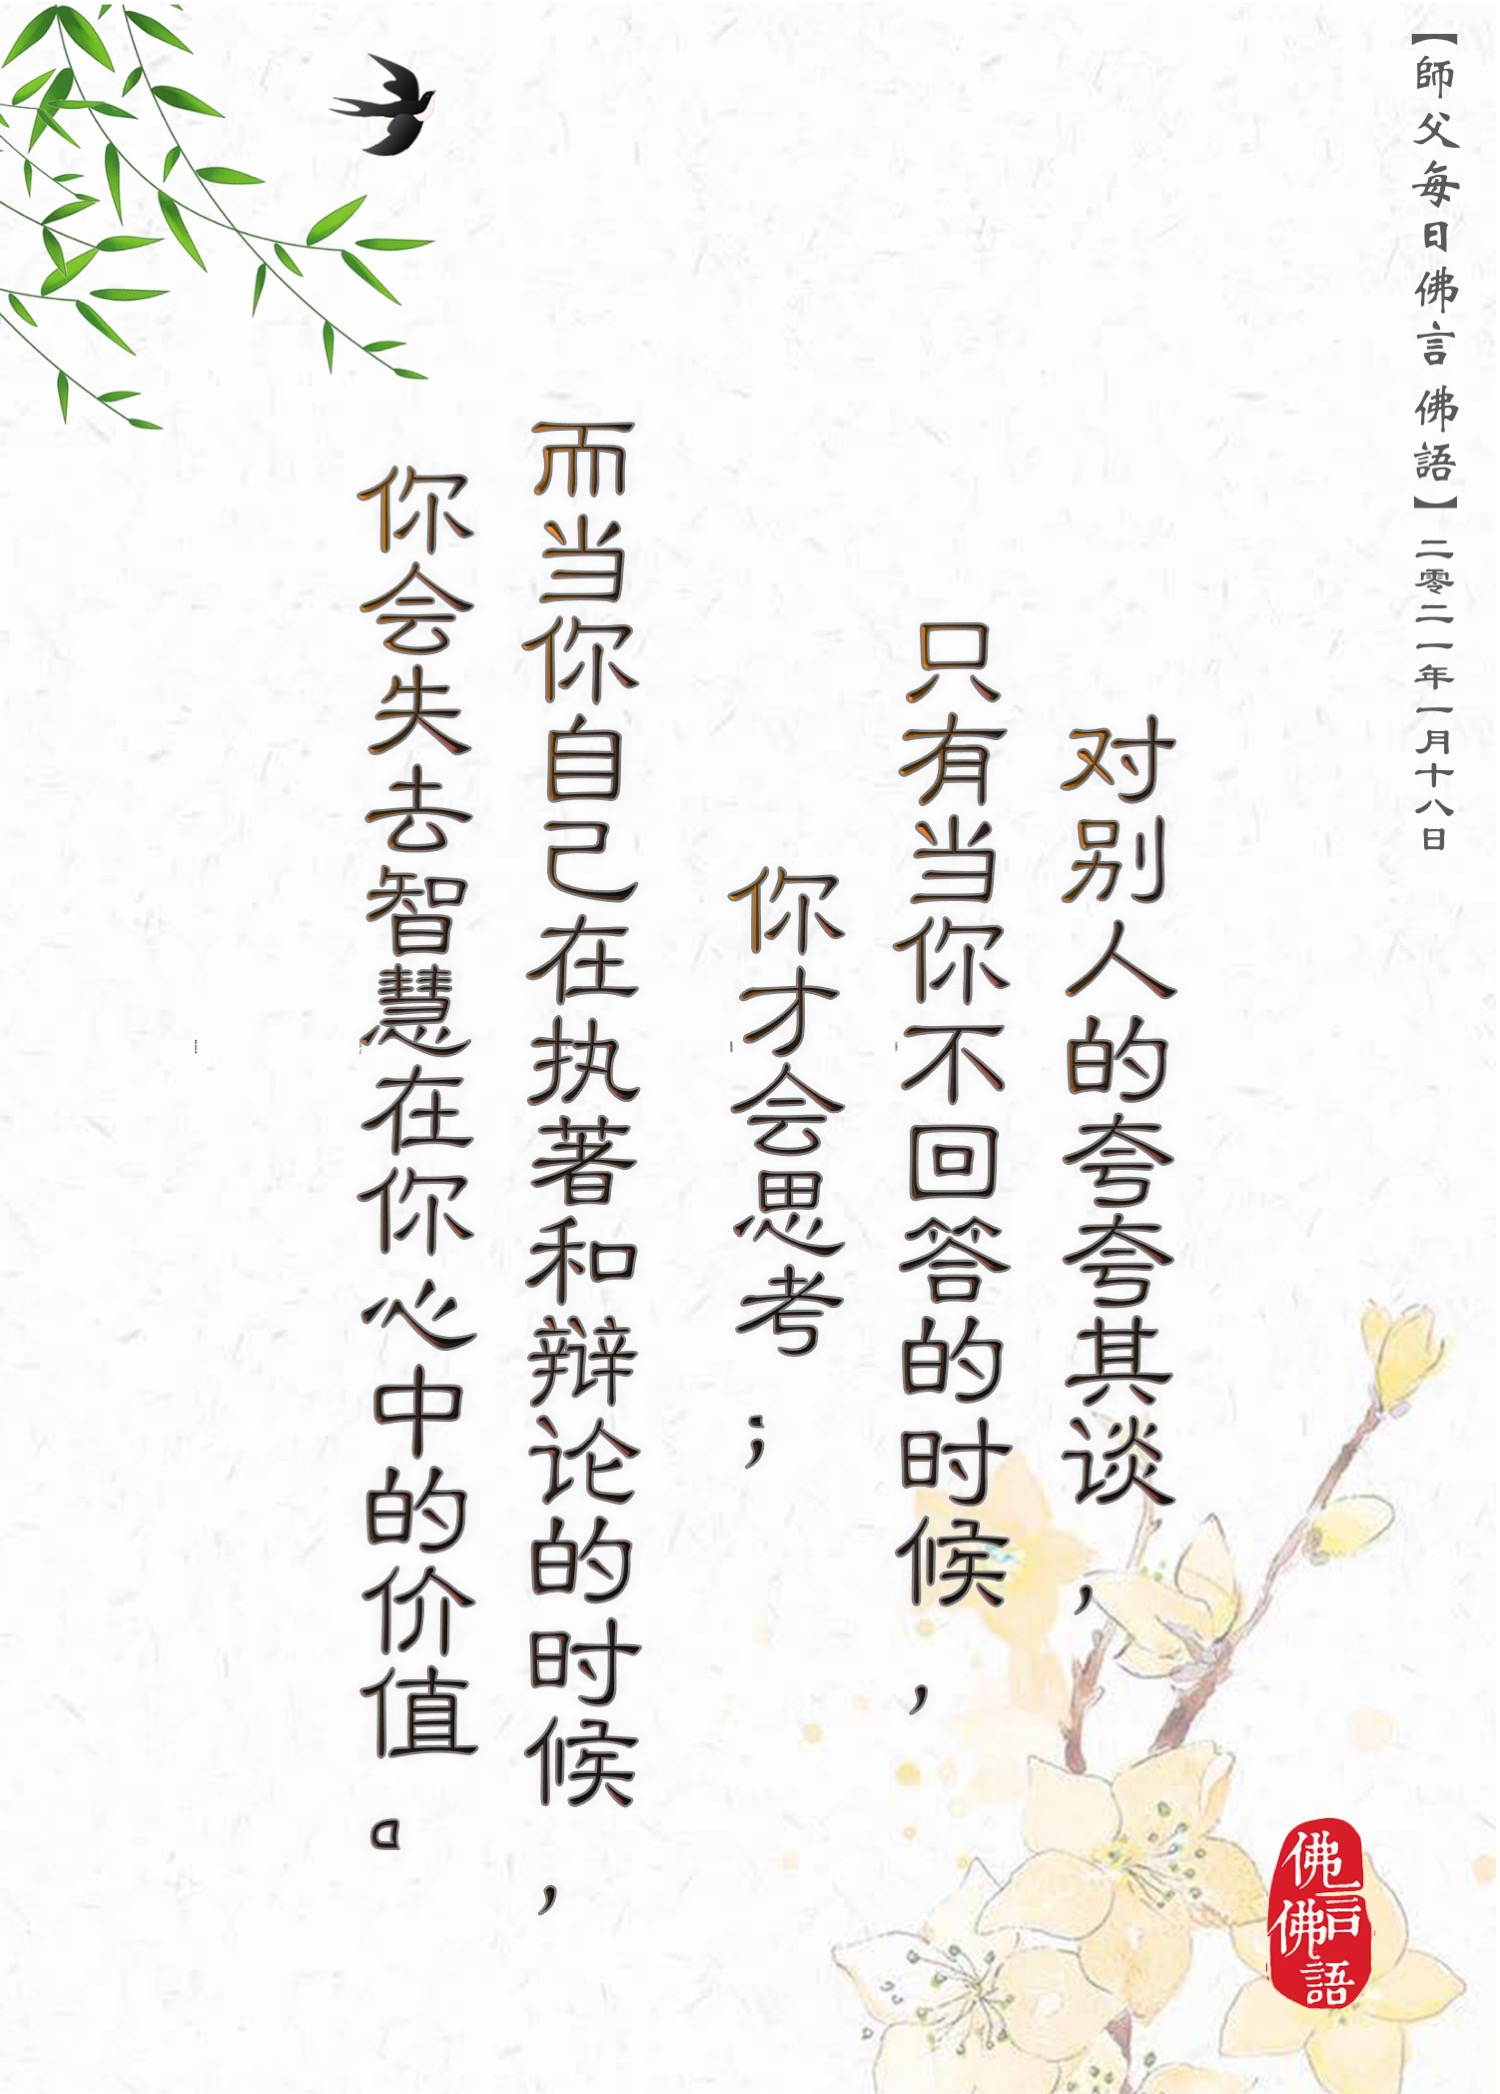 【師父每日佛言佛語】二零二一年一月十八日
对别人的夸夸其谈,
只有当你不回答的时候,
你才会思考;
而当你自己在执著和辩论的时候,
你会失去智慧在你心中的价值。
佛言佛語